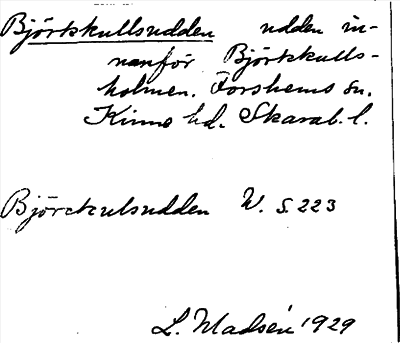 Björkkullsudden udden in-
nanför Björkkulls-
holmen. Forshems sn.
Kinne hd. Skarab. l.
Björckulsudden W. S. 223
L. Madsén 1929